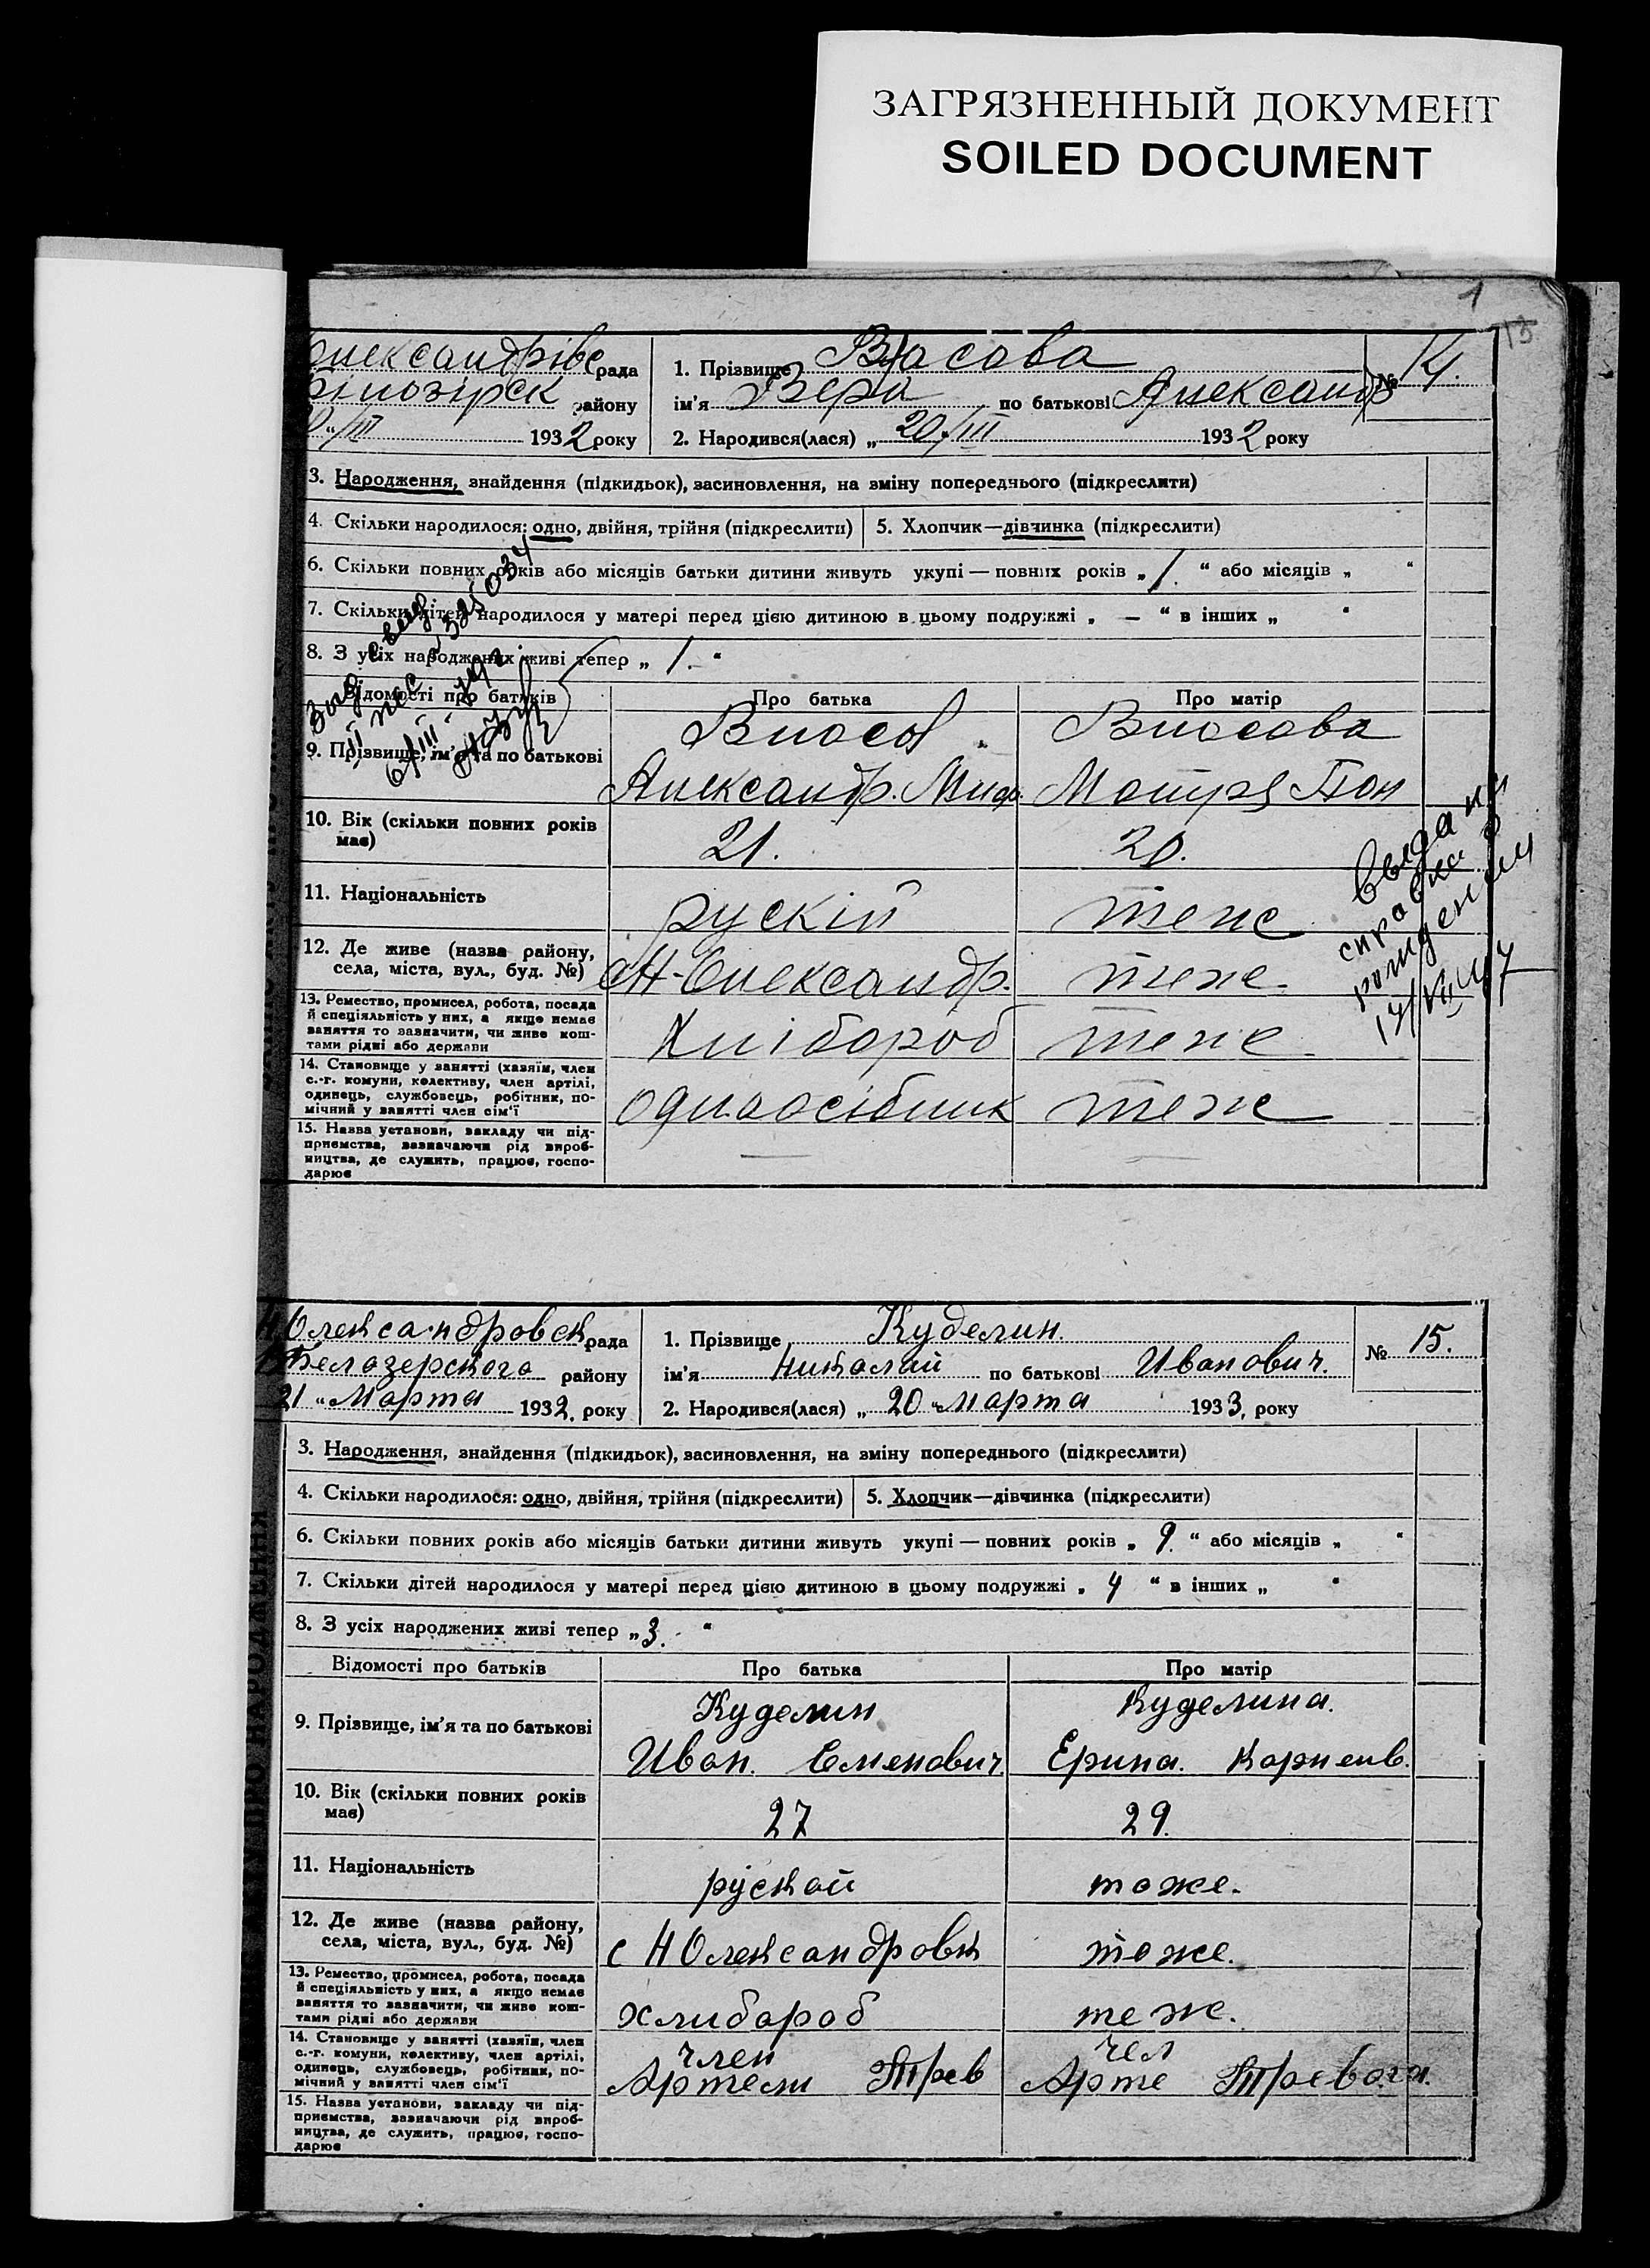 ЗАГРЯЗНЕННЫЙ ДОКУМЕНТ
SOILED DOCUMENT
1
13
Олександрівс рада
Білозірск району
"/III 1932 року
1. Прізвище Власова
ім'я Вера по батькові Александр
№ 14.
2. Народився(лася) „20/III 1932 року
3. Народження, знайдення (підкидьок), засиновлення, на зміну попереднього (підкреслити)
4. Скільки народилося: одно, двійня, трійня (підкреслити)
5. Хлопчик—дівчинка (підкреслити)
6. Скільки повних років або місяців батьки дитини живуть укупі — повних років „ 1. “ або місяців „ “
7. Скільки дітей народилося у матері перед цією дитиною в цьому подружжі „ — “ в інших „ “
8. З усіх народжених живі тепер „ 1. “
Відомості про батьків
Про батька
Про матір
9. Прізвище, ім'я та по батькові
Власов
Александр.
Власова
10. Вік (скільки повних років має)
21.
20.
11. Національність
рускій
теже
12. Де живе (назва району, села, міста, вул., буд. №)
Олександр.
теже.
13. Ремество, промисел, робота, посада й спеціяльність у них, а якщо немає заняття то зазначити, чи живе коштами рідні або держави
Хлібороб
теже
14. Становище у занятті (хазяїн, член с.-г. комуни, колективу, член артілі, одинець, службовець, робітник, помічний у занятті член сім'ї
одноосібник
теже
15. Назва установи, закладу чи підприємства, зазначаючи рід виробництва, де служить, працює, господарює
видана
справка о
рождении
Олександровск рада
Белозерского району
21 “ Марта 1933. року
1. Прізвище Куделин.
ім'я Николай по батькові Иванович.
№ 15.
2. Народився(лася) „ 20 “ Марта 1933, року
3. Народження, знайдення (підкидьок), засиновлення, на зміну попереднього (підкреслити)
4. Скільки народилося: одно, двійня, трійня (підкреслити)
5. Хлопчик—дівчинка (підкреслити)
6. Скільки повних років або місяців батьки дитини живуть укупі — повних років „ 9. “ або місяців „ “
7. Скільки дітей народилося у матері перед цією дитиною в цьому подружжі „ 4 “ в інших „ “
8. З усіх народжених живі тепер „ 3. “
Відомості про батьків
Про батька
Про матір
9. Прізвище, ім'я та по батькові
Куделин
Иван. Еменович
Куделина.
Ерина. Корнеив.
10. Вік (скільки повних років має)
27
29.
11. Національність
руской
може.
12. Де живе (назва району, села, міста, вул., буд. №)
с Н Олександровк
може.
13. Ремество, промисел, робота, посада й спеціяльність у них, а якщо немає заняття то зазначити, чи живе коштами рідні або держави
хлибороб
теже.
14. Становище у занятті (хазяїн, член с.-г. комуни, колективу, член артілі, одинець, службовець, робітник, помічний у занятті член сім'ї
член
Артели
чел
Арте
15. Назва установи, закладу чи підприємства, зазначаючи рід виробництва, де служить, працює, господарює